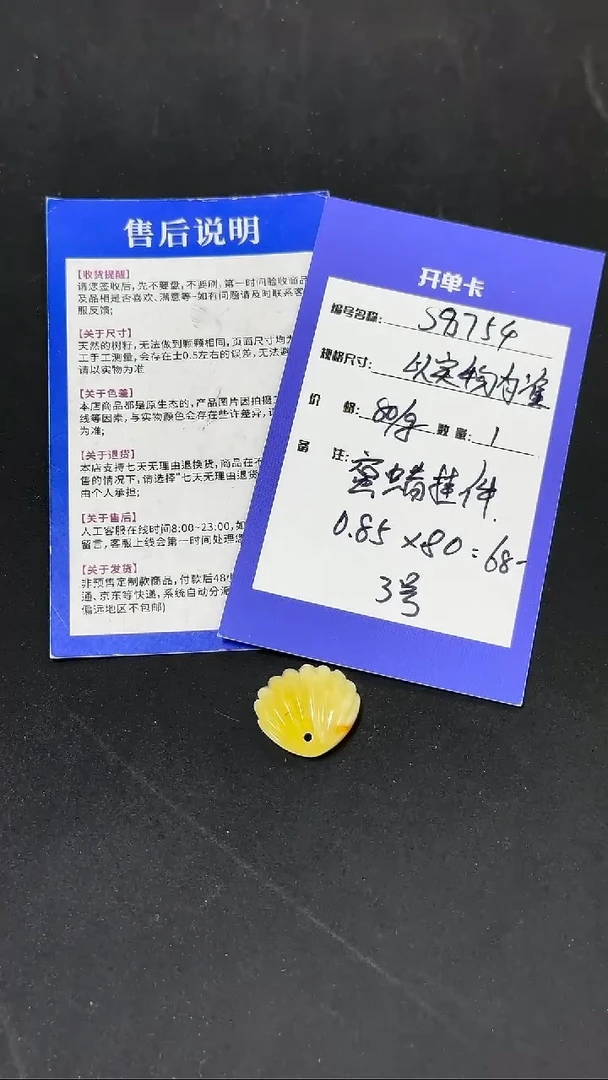 售后说明
【收货提醒】
请您签收后，先不要盘，不要刷，第一时间验收商品
及品相是否喜欢、满意等-如有问题请及时联系客
服反馈；
【关于尺寸】
天然的树籽，无法做到颗颗相同，页面尺寸均为
工手工测量，会存在土0.5左右的误差，无法避
请以实物为准
【关于色差】
本店商品都是原生态的，产品图片因拍摄
线等因素，与实物颜色会存在些许差异，
为准；
【关于退货】
本店支持七天无理由退换货，商品在不
售的情况下，请选择"七天无理由退货
由个人承担；
【关于售后】
人工客服在线时间8:00~23:00，如
留言，客服上线会第一时间处理
【关于发货】
非预售定制款商品，付款后48小
通、京东等快递，系统自动分派
偏远地区不包邮)
开单卡
编号名称：S98754
规格尺寸：以实物为准
价 格：80/g 数量：1
备 注：蜜蜡挂件
0.85×80=68-
3号